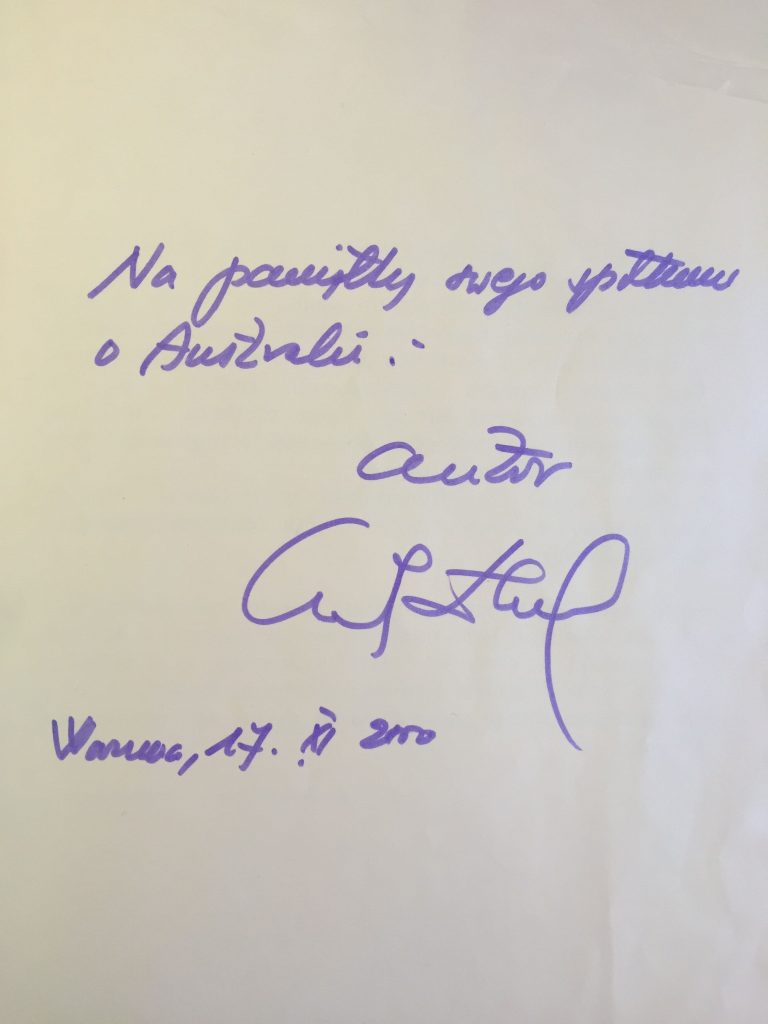 Na pamiątkę swego spotkania
o Australii.-
autor
Warszawa, 17. XI 2000